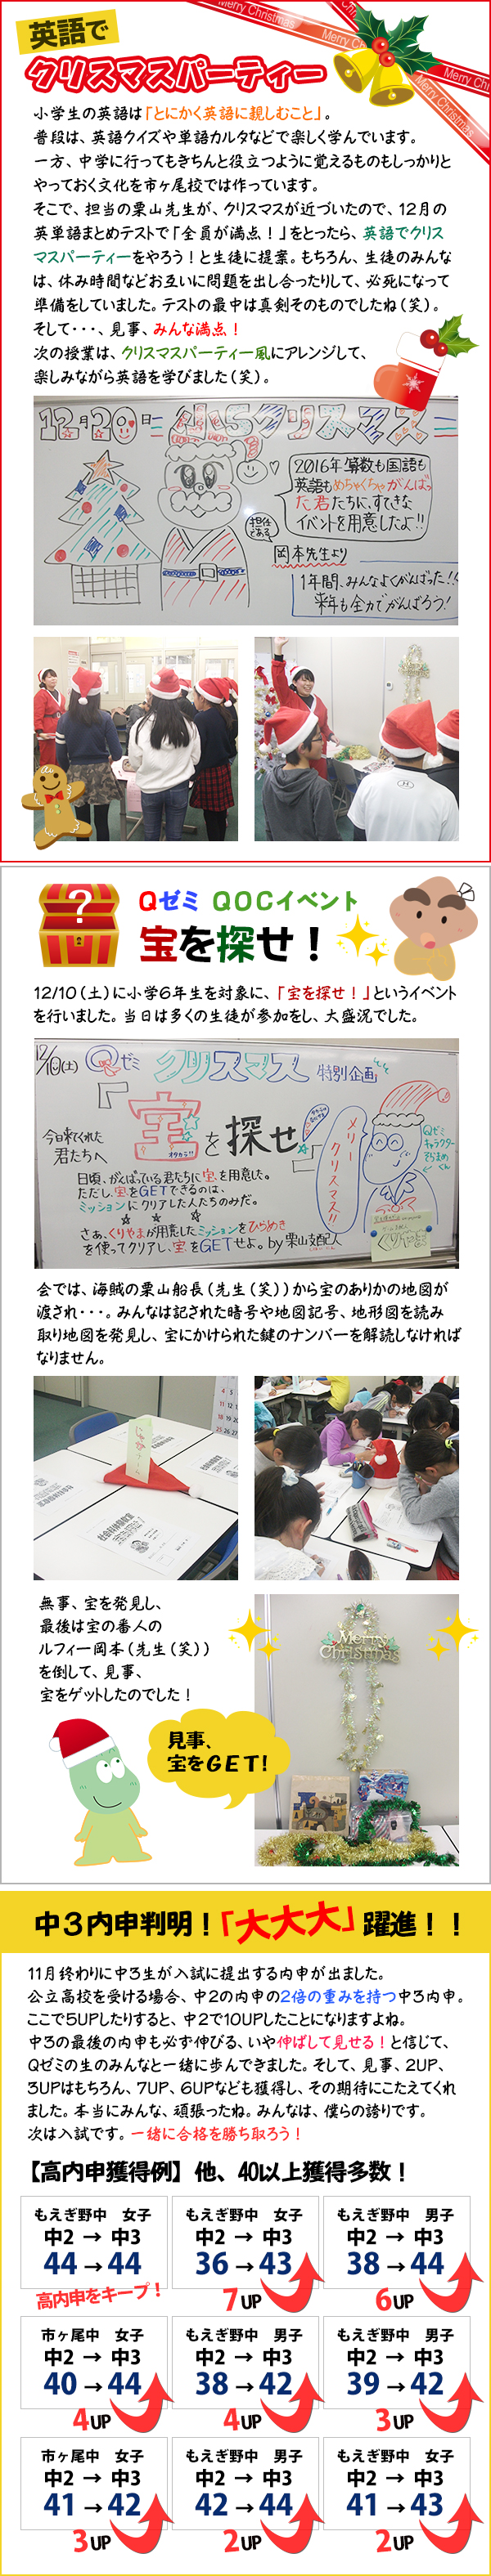 英語で
Merry Christmas
Merry Ch
Merry Ch
Merry Christmas
クリスマスパーティー
小学生の英語は「とにかく英語に親しむこと」。
普段は、英語クイズや単語カルタなどで楽しく学んでいます。
一方、中学に行ってもきちんと役立つように覚えるものもしっかりと
やっておく文化を市ヶ尾校では作っています。
そこで、担当の栗山先生が、クリスマスが近づいたので、12月の
英単語まとめテストで「全員が満点！」をとったら、英語でクリス
マスパーティーをやろう！と生徒に提案。もちろん、生徒のみんな
は、休み時間などお互いに問題を出し合ったりして、必死になって
準備をしていました。テストの最中は真剣そのものでしたね（笑）。
そして・・・、見事、みんな満点！
次の授業は、クリスマスパーティー風にアレンジして、
楽しみながら英語を学びました（笑）。
12月20日 小5クリスマス
2016年算数も国語も
英語もめちゃくちゃがんばっ
た君たちに、すてきな
イベントを用意したよ!!
担任である
岡本先生より
1年間、みんなよくがんばった!!
来年も全力でがんばろう!
?
Qゼミ QOCイベント
宝を探せ！
12/10（土）に小学6年生を対象に、「宝を探せ！」というイベント
を行いました。当日は多くの生徒が参加をし、大盛況でした。
12/10(土) Qゼミ クリスマス 特別企画
今日来てくれた
君たちへ
宝を探せ
オタカラ!!
メリークリスマス!!
Qゼミ
キャラクター
日頃、がんばっている君たちに宝を用意した。
ただし、宝をGETできるのは、
ミッションにクリアした人たちのみだ。
さぁ、くりやまが用意したミッションをひらめき
を使ってクリアし、宝をGETせよ。by栗山支配人
会では、海賊の栗山船長（先生（笑））から宝のありかの地図が
渡され・・・。みんなは記された暗号や地図記号、地形図を読み
取り地図を発見し、宝にかけられた鍵のナンバーを解読しなければ
なりません。
無事、宝を発見し、
最後は宝の番人の
ルフィー岡本（先生（笑））
を倒して、見事、
宝をゲットしたのでした！
Merry
Christmas
見事、
宝をGET!
中3内申判明！「大大大」躍進！！
11月終わりに中3生が入試に提出する内申が出ました。
公立高校を受ける場合、中2の内申の2倍の重みを持つ中3内申。
ここで5UPしたりすると、中2で10UPしたことになりますよね。
中3の最後の内申も必ず伸びる、いや伸ばして見せる！と信じて、
Qゼミの生のみんなと一緒に歩んできました。そして、見事、2UP、
3UPはもちろん、7UP、6UPなども獲得し、その期待にこたえてくれ
ました。本当にみんな、頑張ったね。みんなは、僕らの誇りです。
次は入試です。一緒に合格を勝ち取ろう！
【高内申獲得例】他、40以上獲得多数！
もえぎ野中 女子
中2 → 中3
44 → 44
高内申をキープ！
もえぎ野中 女子
中2 → 中3
36 → 43
7UP
もえぎ野中 男子
中2 → 中3
38 → 44
6UP
市ヶ尾中 女子
中2 → 中3
40 → 44
4UP
もえぎ野中 女子
中2 → 中3
38 → 42
4UP
もえぎ野中 男子
中2 → 中3
39 → 42
3UP
市ヶ尾中 女子
中2 → 中3
41 → 42
3UP
もえぎ野中 男子
中2 → 中3
42 → 44
2UP
もえぎ野中 女子
中2 → 中3
41 → 43
2UP